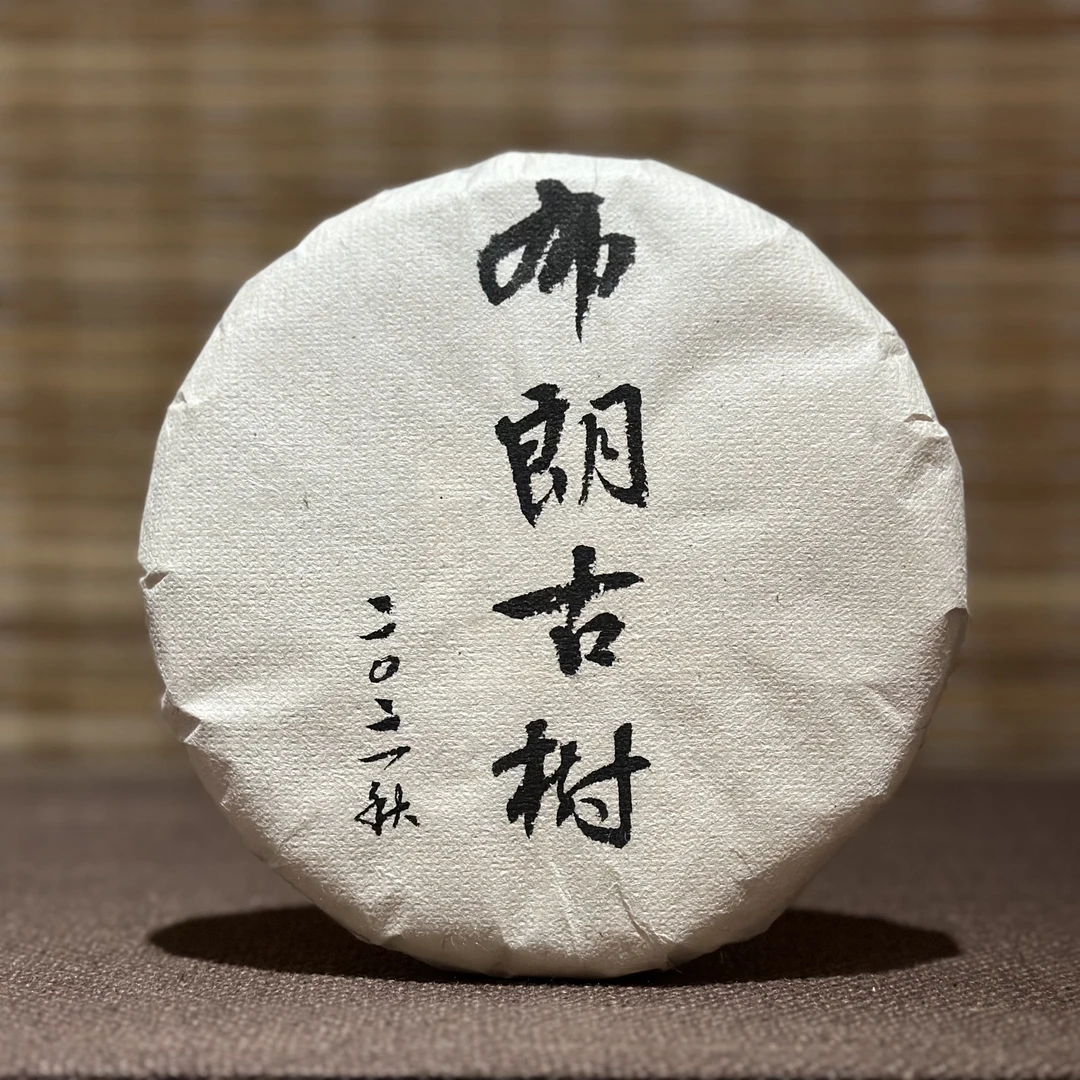 布朗古树
二〇二一秋